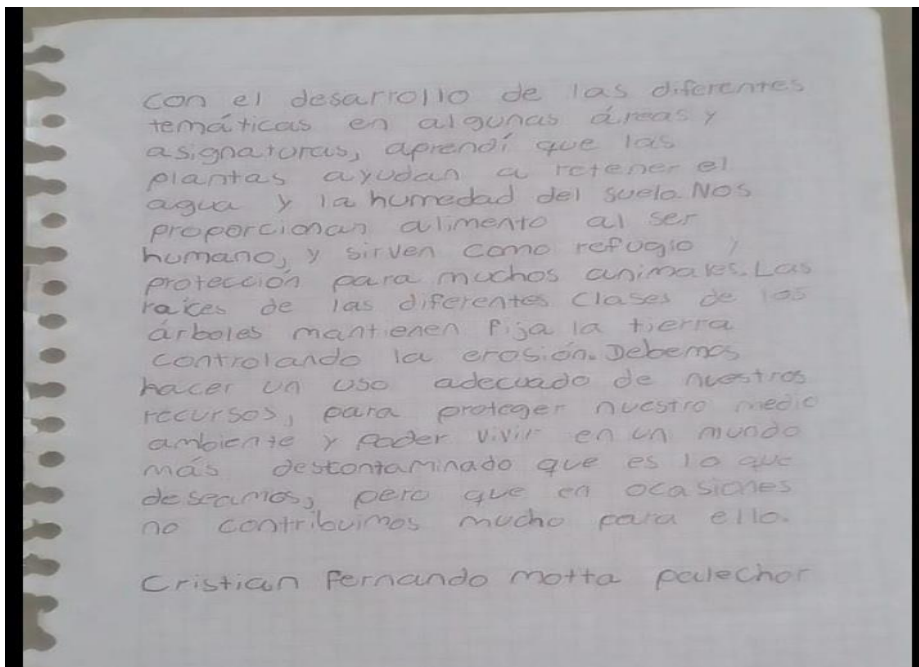 con el desarrollo de las diferentes
temáticas en algunas áreas y
asignaturas, aprendí que las
plantas ayudan a retener el
agua y la humedad del suelo. Nos
proporcionan alimento al ser
humano, y sirven como refugio y
protección para muchos animales. Las
raíces de las diferentes clases de los
árboles mantienen fija la tierra
controlando la erosión. Debemos
hacer un uso adecuado de nuestros
recursos, para proteger nuestro medio
ambiente y poder vivir en un mundo
más descontaminado que es lo que
deseamos, pero que en ocasiones
no contribuimos mucho para ello.
Cristian Fernando Motta palechor